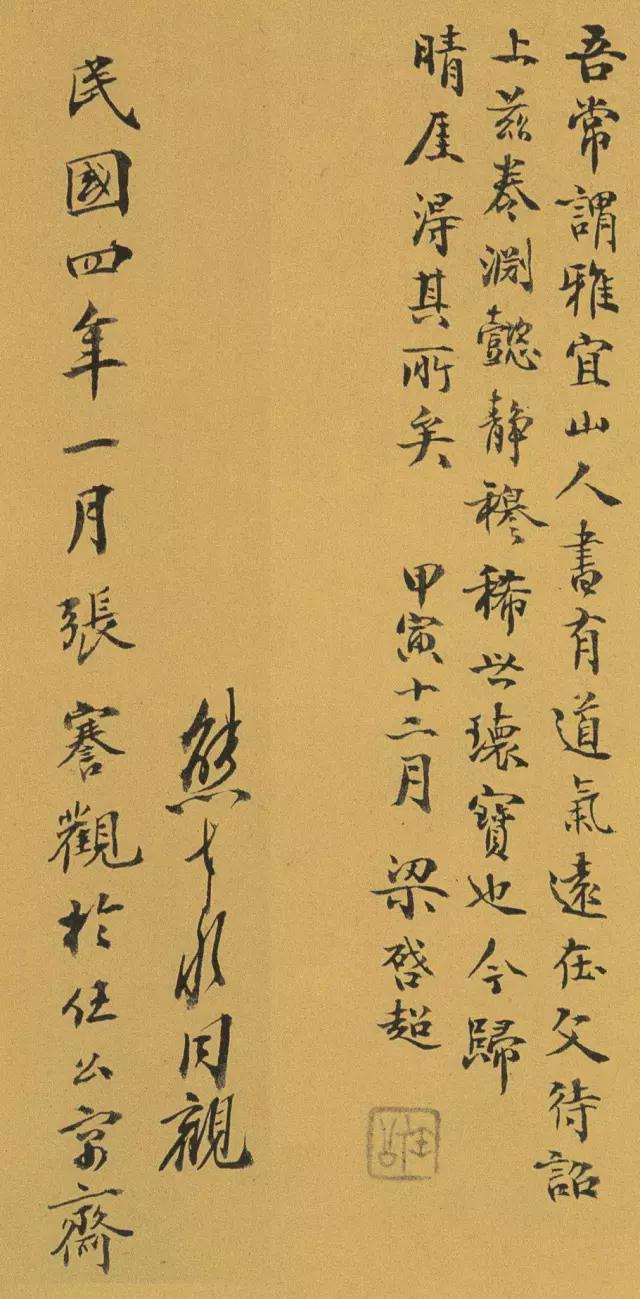 吾常謂雅宜山人書有道氣遠在父待詔
上茲卷淵懿静穆稀世瓌寶也今歸
晴厓得其所矣 甲寅十二月 梁啓超
熊 同觀
民國四年一月張謇觀於任公寓齋